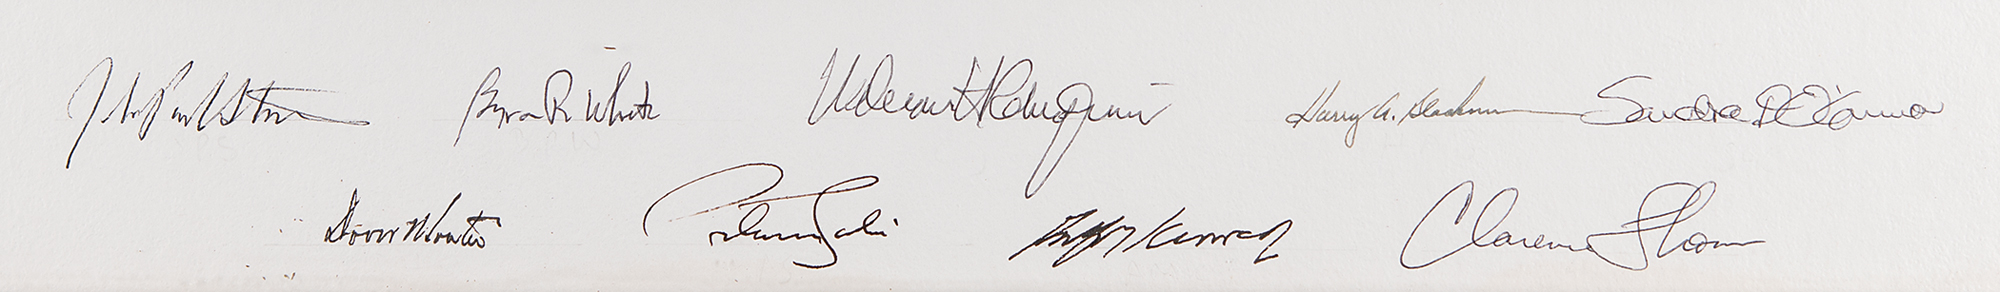 John Paul Stevens Byron R White William H Rehnquist Harry A. Blackmun Sandra D O'Connor
David H Souter Antonin Scalia Anthony Kennedy Clarence Thomas